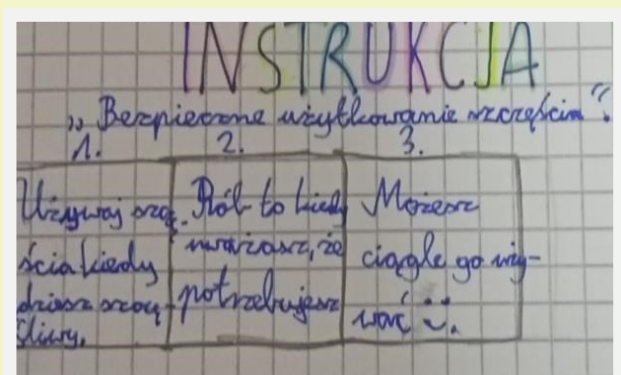 INSTRUKCJA
„Bezpieczne użytkowanie szczęścia”.
1. 2. 3.
Używaj szczę-
ścia kiedy
szczę-
śliwy.
Rób to kiedy
uważasz, że
potrzebujesz
Możesz
ciągle go uży-
wać :).